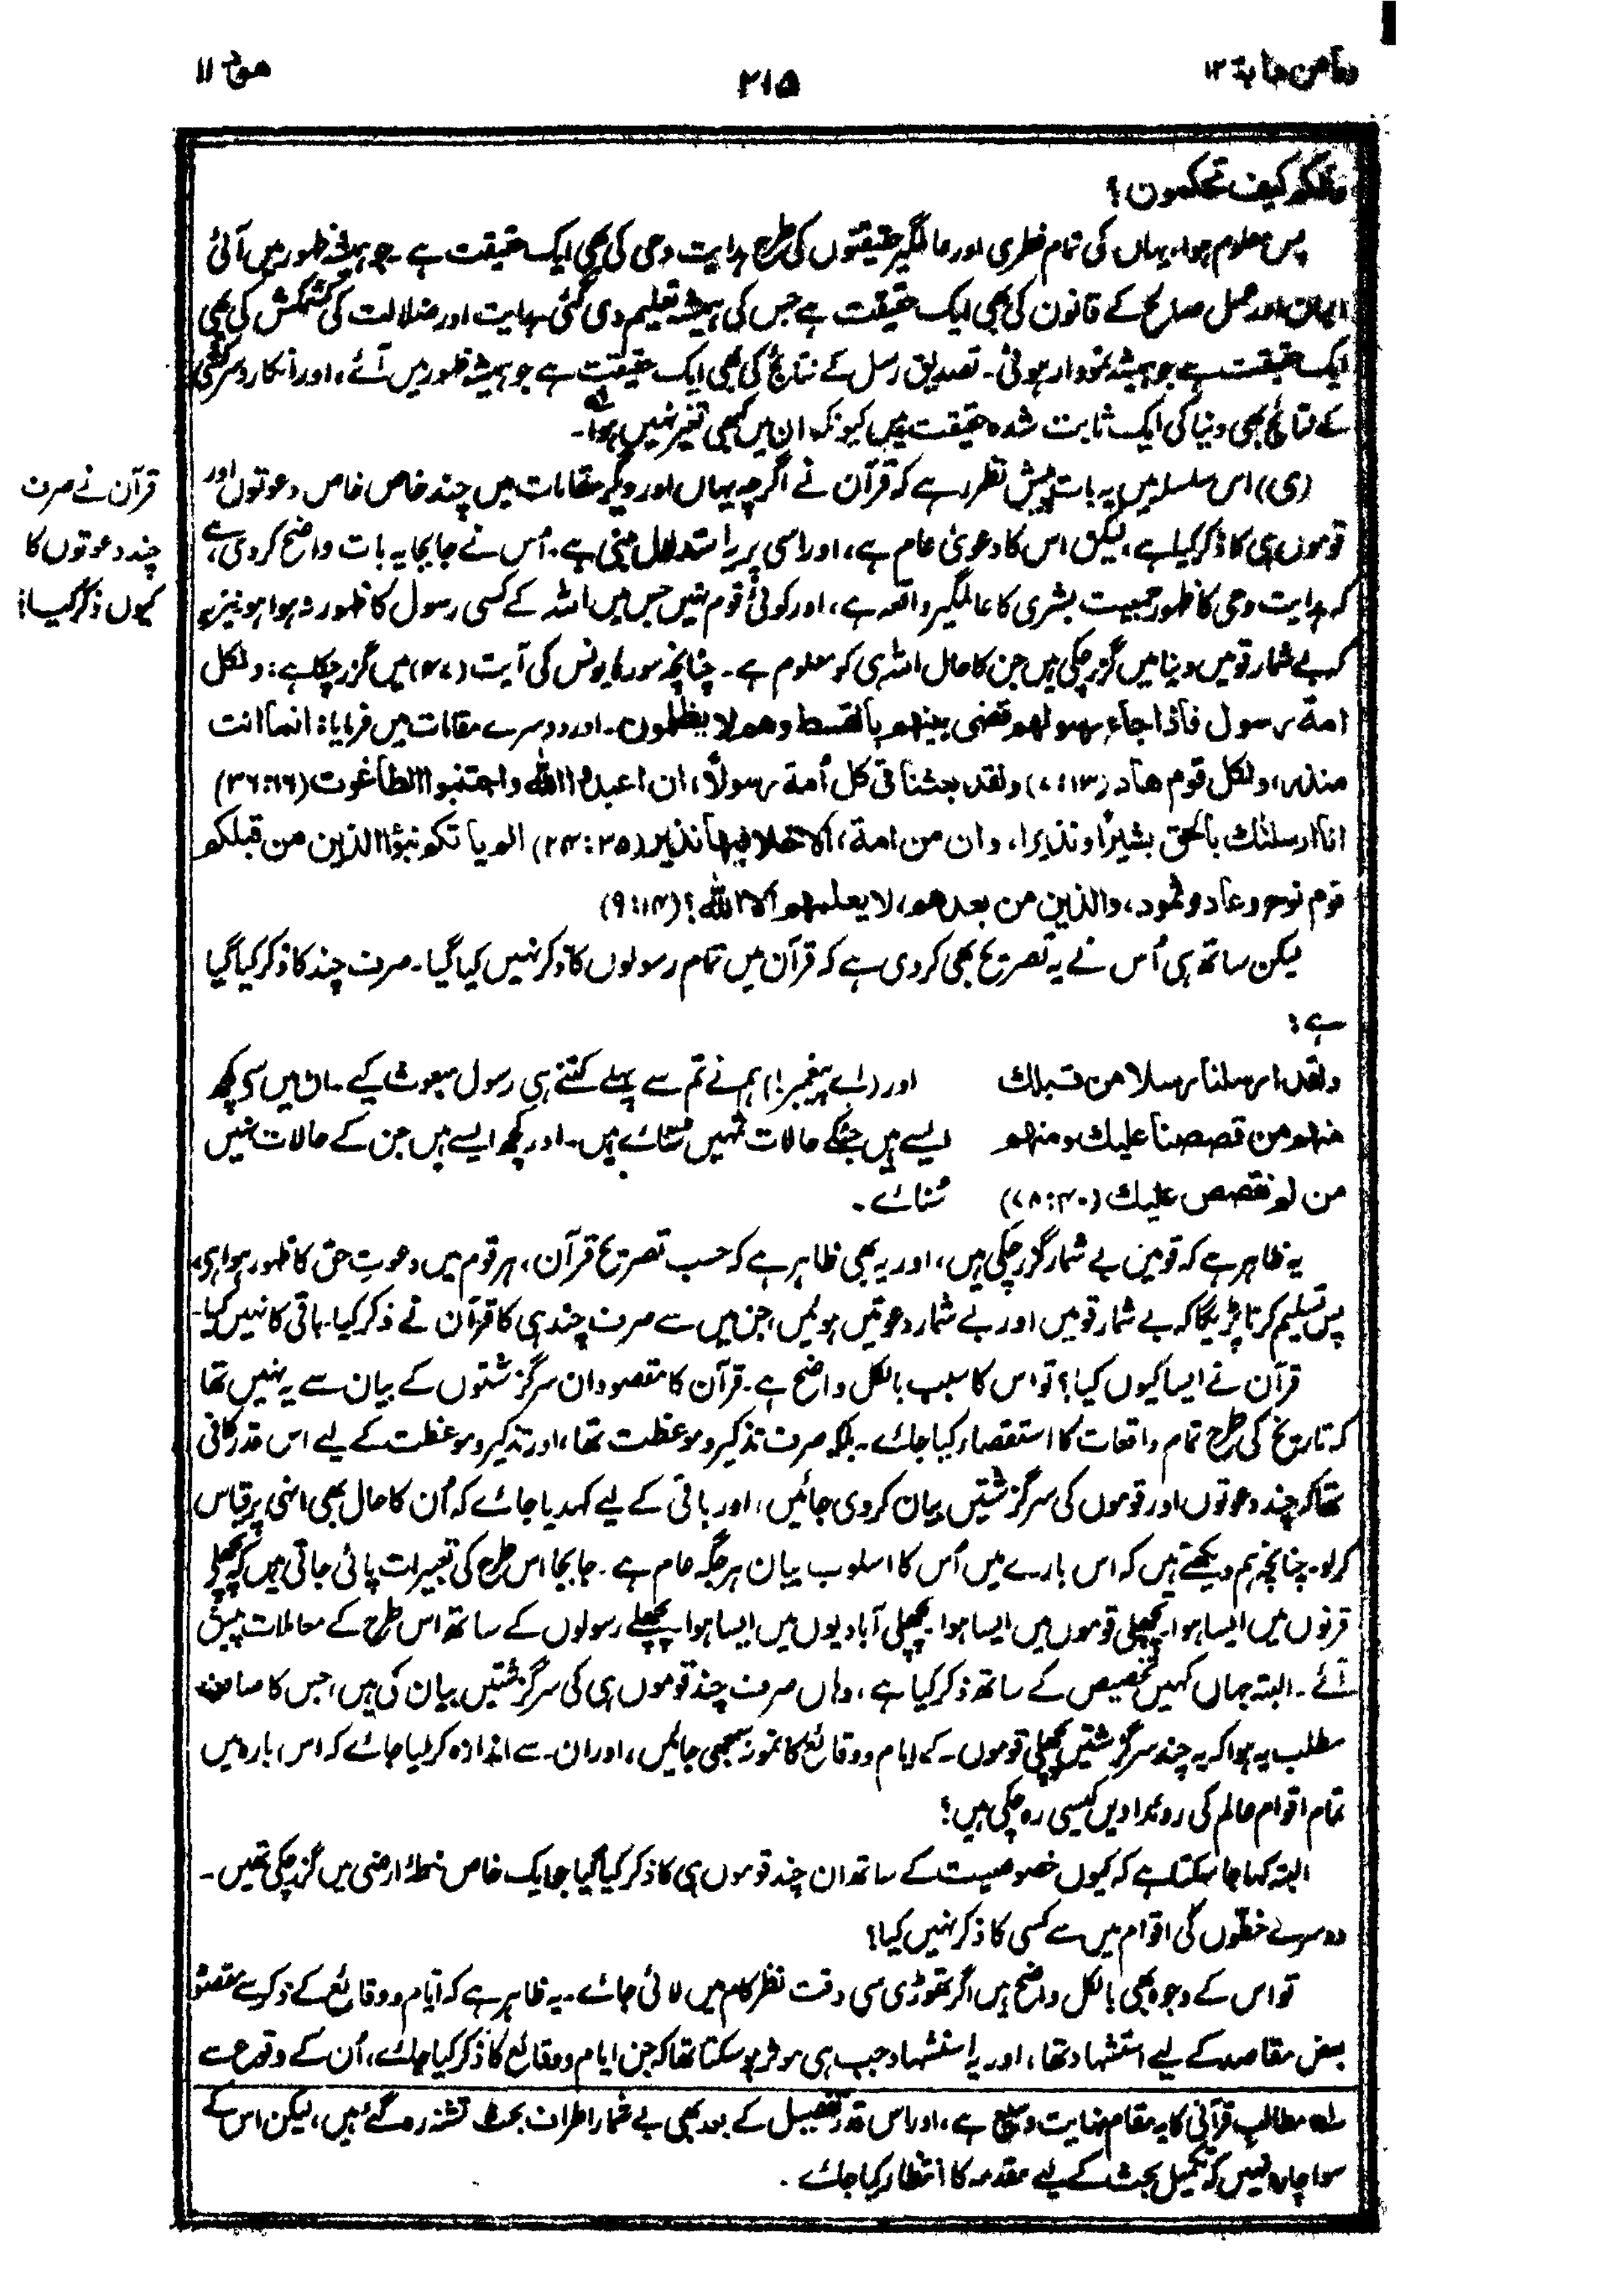 ومآمن دآبة ١٢
٢١٥
هود ١١
فمالكم كيف تحكمون؟
پس معلوم ہوا، یہاں کی تمام فطری اور عالمگیر حقیقتوں کی طرح ہدایت وحی کی بھی ایک حقیقت ہے۔ جو ہمیشہ ظہور میں آئی
ایمان اور عمل صالح کے قانون کی بھی ایک حقیقت ہے جس کی ہمیشہ تعلیم دی گئی۔ ہدایت اور ضلالت کی کشمکش کی بھی
ایک حقیقت ہے جو ہمیشہ نمودار ہوئی۔ تصدیق رسل کے نتائج کی بھی ایک حقیقت ہے جو ہمیشہ ظہور میں آئے، اور انکار و سرکشی
کے نتائج بھی دنیا کی ایک ثابت شدہ حقیقت ہیں کیونکہ ان میں کبھی تغیر نہیں ہوا۔
(ی) اس سلسلہ میں یہ بات پیش نظر رہے کہ قرآن نے اگرچہ یہاں اور دیگر مقامات میں چند خاص خاص دعوتوں اور
قوموں ہی کا ذکر کیا ہے، لیکن اس کا دعویٰ عام ہے، اور اسی پر یہ استدلال مبنی ہے۔ اُس نے جابجا یہ بات واضح کر دی ہے
کہ ہدایت وحی کا ظہور جمیعت بشری کا عالمگیر واقعہ ہے، اور کوئی قوم نہیں جس میں اللہ کے کسی رسول کا ظہور نہ ہوا ہو نیز یہ
کہ بے شمار قومیں دنیا میں گزر چکی ہیں جن کا حال اللہ ہی کو معلوم ہے۔ چنانچہ سورہ یونس کی آیت (۴۷) میں گزر چکا ہے: ولکل
امة رسول فاذا جاء رسولهم قضى بينهم بالقسط وهم لا يظلمون۔ اور دوسرے مقامات میں فرمایا: انمآ انت
منذر، ولكل قوم هاد (۱۳:۷) ولقد بعثنا فى كل أمة رسولاً، ان اعبدوا الله واجتنبوا الطاغوت (۳۶:۱۶)
انا ارسلنٰك بالحق بشيراً ونذيرا، وان من امة، الا خلا فيها نذير (۲۴:۳۵) الم ياتكم نبؤا الذين من قبلكم
قوم نوح وعاد وثمود، والذين من بعدهم، لا يعلمهم الا الله؟ (۹:۱۴)
لیکن ساتھ ہی اُس نے یہ تصریح بھی کر دی ہے کہ قرآن میں تمام رسولوں کا ذکر نہیں کیا گیا۔ صرف چند کا ذکر کیا گیا
ہے:
ولقد ارسلنا رسلا من قبلك
منهم من قصصنا عليك ومنهم
من لم نقصص عليك (۷۸:۴۰)
اور (اے پیغمبر!) ہم نے تم سے پہلے کتنے ہی رسول مبعوث کیے۔ ان میں سے کچھ
ایسے ہیں جنکے حالات تمہیں سنائے ہیں۔ اور کچھ ایسے ہیں جن کے حالات نہیں
سُنائے۔
یہ ظاہر ہے کہ قومیں بے شمار گزر چکی ہیں، اور یہ بھی ظاہر ہے کہ حسب تصریح قرآن، ہر قوم میں دعوتِ حق کا ظہور ہوا ہے،
پس تسلیم کرنا پڑیگا کہ بے شمار قومیں اور بے شمار دعوتیں ہوئیں، جن میں سے صرف چند ہی کا قرآن نے ذکر کیا۔ باقی کا نہیں کیا۔
قرآن نے ایسا کیوں کیا؟ تو اس کا سبب بالکل واضح ہے۔ قرآن کا مقصود ان سرگزشتوں کے بیان سے یہ نہیں تھا
کہ تاریخ کی طرح تمام واقعات کا استقصار کیا جائے۔ بلکہ صرف تذکیر و موعظت تھا، اور تذکیر و موعظت کے لیے اس قدر کافی
تھا کہ چند دعوتوں اور قوموں کی سرگزشتیں بیان کر دی جائیں، اور باقی کے لیے کہدیا جائے کہ اُن کا حال بھی انہی پر قیاس
کرلو۔ چنانچہ ہم دیکھتے ہیں کہ اس بارے میں اُس کا اسلوب بیان ہر جگہ عام ہے۔ جابجا اس طرح کی تعبیرات پائی جاتی ہیں کہ پچھلے
قرنوں میں ایسا ہوا۔ پچھلی قوموں میں ایسا ہوا۔ پچھلی آبادیوں میں ایسا ہوا۔ پچھلے رسولوں کے ساتھ اس طرح کے معاملات پیش
آئے۔ البتہ جہاں کہیں تخصیص کے ساتھ ذکر کیا ہے، وہاں صرف چند قوموں ہی کی سرگزشتیں بیان کی ہیں، جس کا صاف
مطلب یہ ہوا کہ یہ چند سرگزشتیں پچھلی قوموں کے ایام و وقائع کا نمونہ سمجھی جائیں، اور ان سے اندازہ کر لیا جائے کہ اس بارہ میں
تمام اقوام عالم کی روئدادیں کیسی رہ چکی ہیں؟
البتہ کہا جا سکتا ہے کہ کیوں خصوصیت کے ساتھ ان چند قوموں ہی کا ذکر کیا گیا جو ایک خاص خطۂ ارضی میں گزر چکی تھیں۔
دوسرے خطّوں کی اقوام میں سے کسی کا ذکر نہیں کیا؟
تو اس کے وجوہ بھی بالکل واضح ہیں اگر تھوڑی سی دقت نظر کام میں لائی جائے۔ یہ ظاہر ہے کہ ایّام و وقائع کے ذکر سے مقصود
بعض مقاصد کے لیے استشہاد تھا، اور یہ استشہاد جب ہی موثر ہو سکتا تھا کہ جن ایام و وقائع کا ذکر کیا جائے، اُن کے وقوع سے
قرآن نے صرف
چند دعوتوں کا
کیوں ذکر کیا؟
لہ مطالبِ قرآنی کا یہ مقام نہایت وسیع ہے، اور اس قدر تفصیل کے بعد بھی بے شمار اطراف بحث تشنہ رہ گئے ہیں، لیکن اس کے
سوا چارہ نہیں کہ تکمیل بحث کے لیے مقدمہ کا انتظار کیا جائے۔